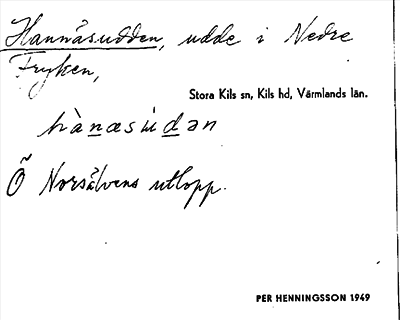 Hannäsudden, udde i Nedre
Fryken,
Stora Kils sn, Kils hd, Värmlands län.
hànæsùdən
Ö Norsälvens utlopp.
PER HENNINGSSON 1949